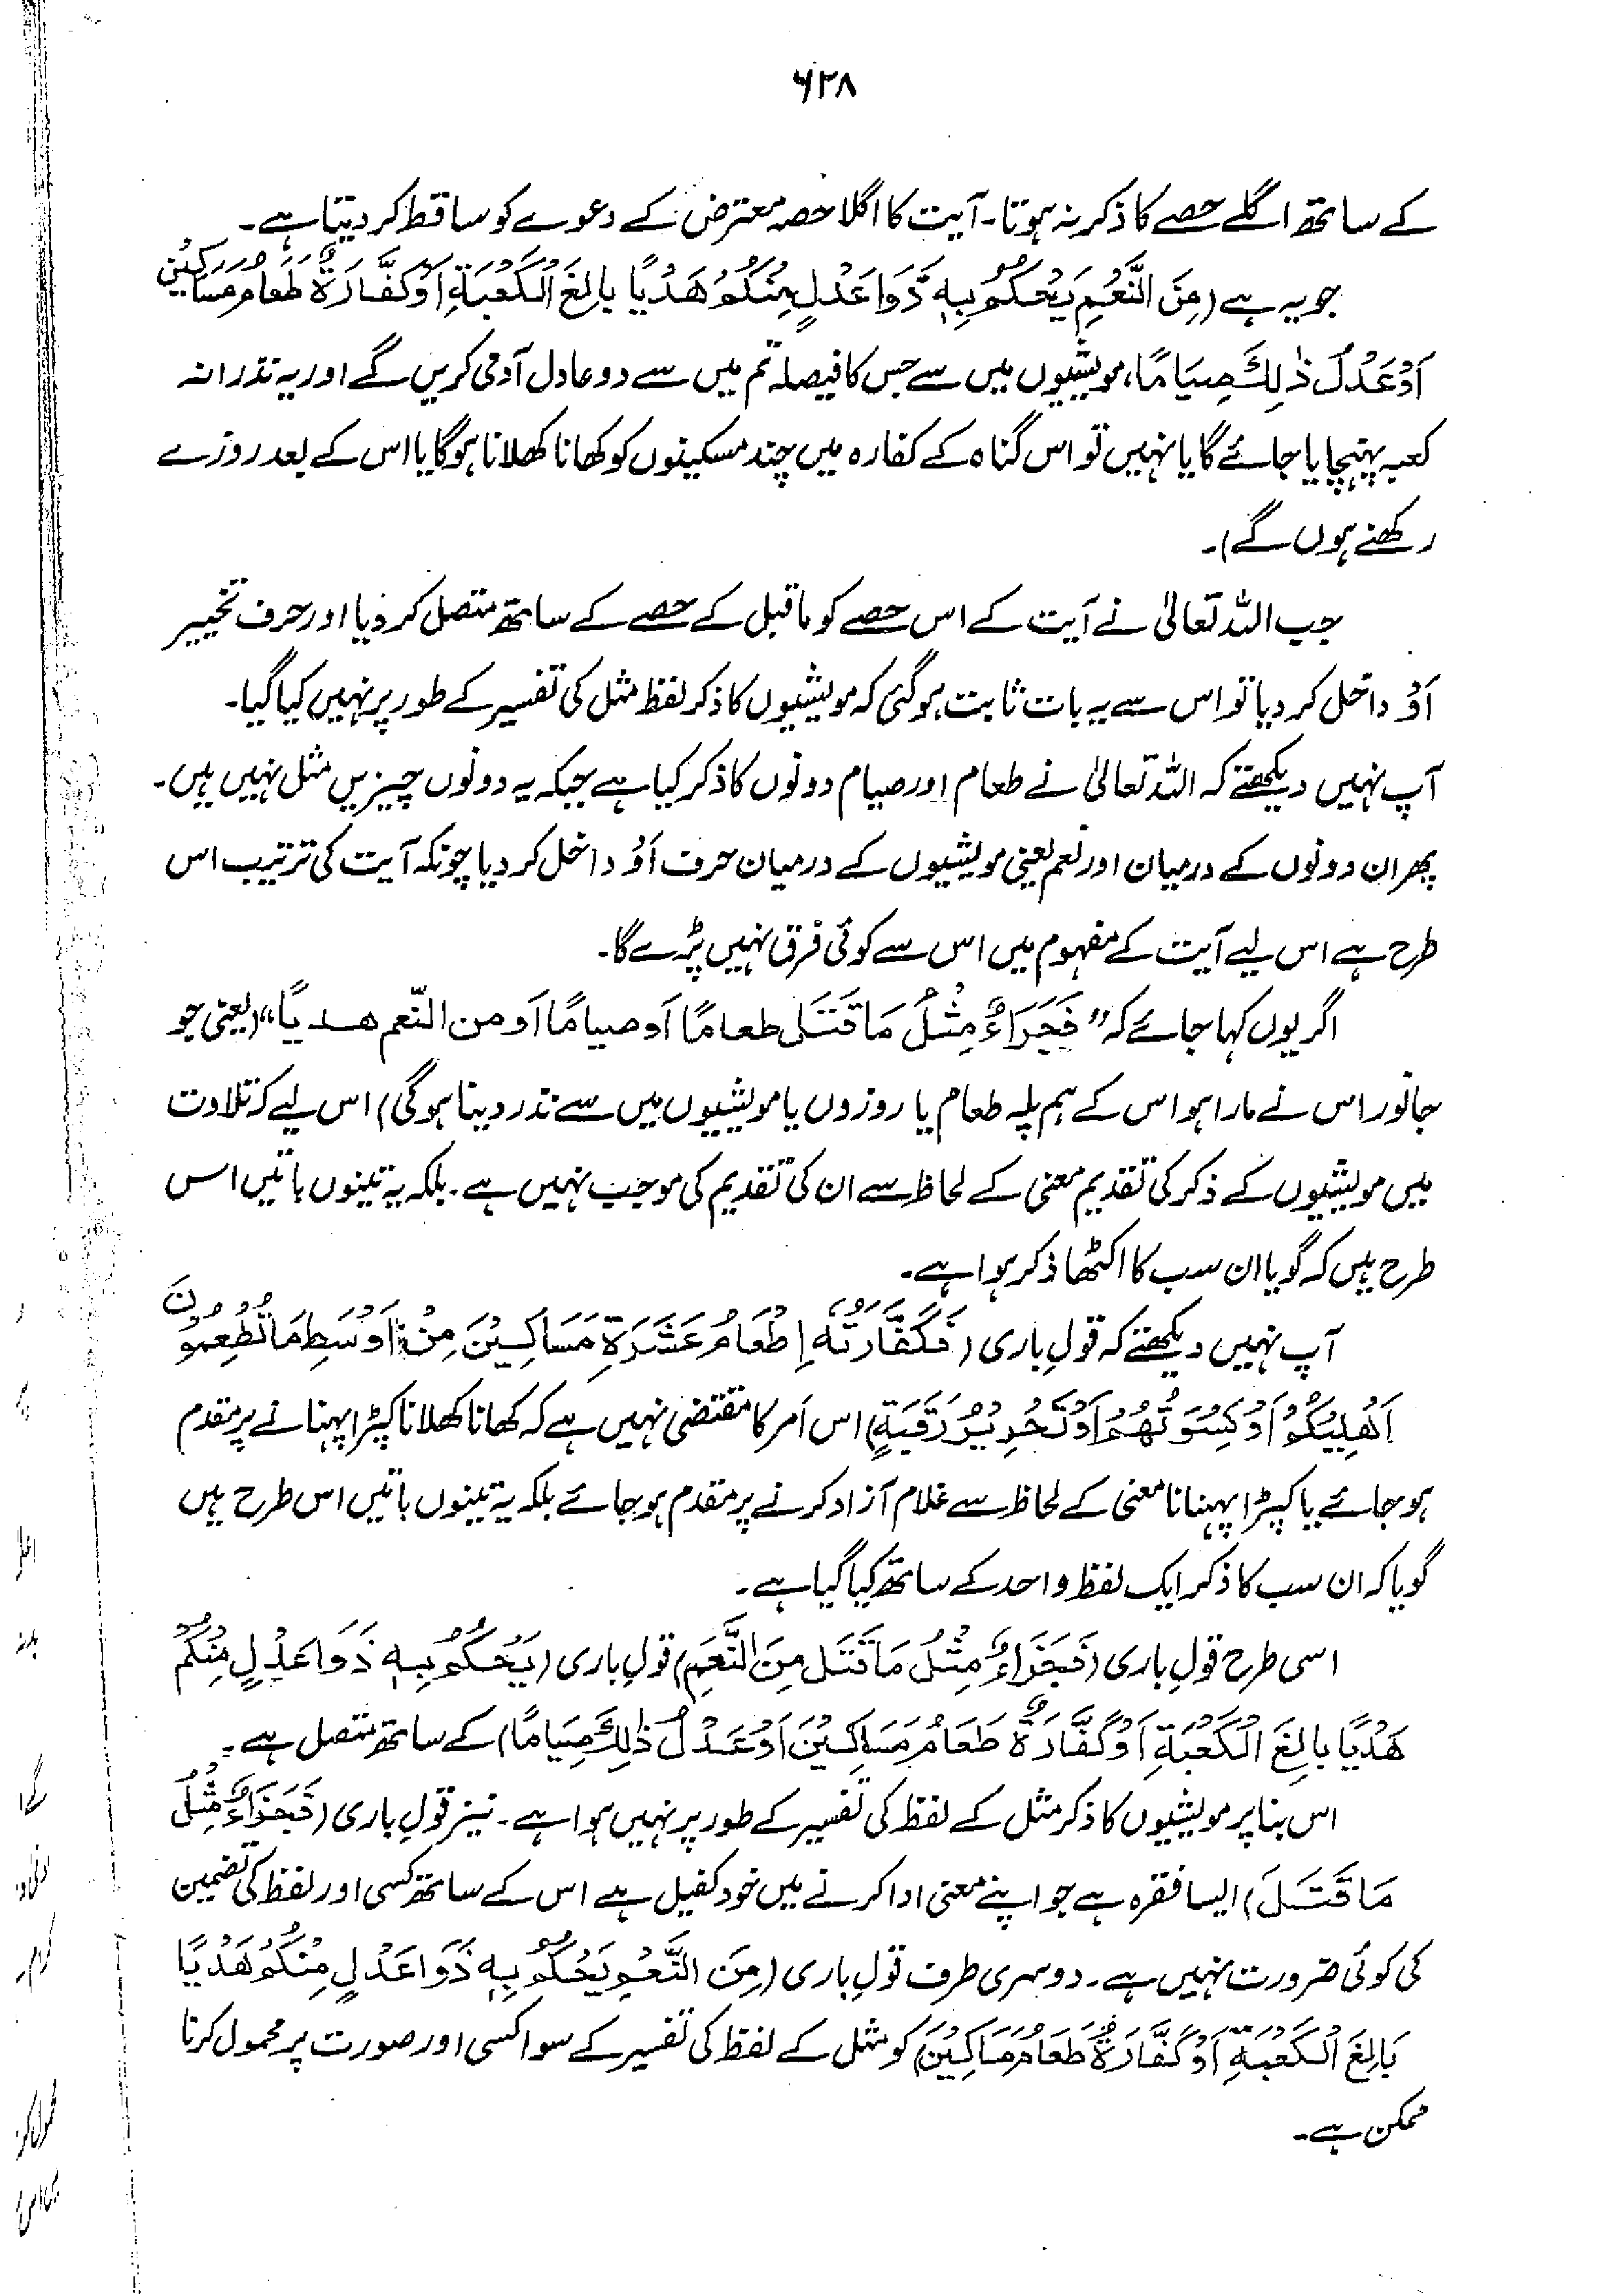 ۶۲۸
کے ساتھ اگلے حصے کا ذکر نہ ہوتا۔ آیت کا اگلا حصہ معترض کے دعوے کو ساقط کر دیتا ہے۔
جو یہ ہے (مِنَ النَّعَمِ يَحْكُمُ بِهٖ ذَوَا عَدْلٍ مِّنْكُمْ هَدْيًا بَالِغَ الْكَعْبَةِ اَوْ كَفَّارَةٌ طَعَامُ مَسَاكِيْنَ
اَوْ عَدْلُ ذٰلِكَ صِيَامًا، مویشیوں میں سے جس کا فیصلہ تم میں سے دو عادل آدمی کریں گے اور یہ نذرانہ
کعبہ پہنچایا جائے گا یا نہیں تو اس گناہ کے کفارہ میں چند مسکینوں کو کھانا کھلانا ہوگا یا اس کے بعد روزے
رکھنے ہوں گے)۔
جب اللہ تعالیٰ نے آیت کے اس حصے کو ماقبل کے حصے کے ساتھ متصل کر دیا اور حرف تخییر
اَوْ داخل کر دیا تو اس سے یہ بات ثابت ہوگئی کہ مویشیوں کا ذکر لفظ مثل کی تفسیر کے طور پر نہیں کیا گیا۔
آپ نہیں دیکھتے کہ اللہ تعالیٰ نے طعام اور صیام دونوں کا ذکر کیا ہے جبکہ یہ دونوں چیزیں مثل نہیں ہیں۔
پھر ان دونوں کے درمیان اور نعم یعنی مویشیوں کے درمیان حرف اَوْ داخل کر دیا چونکہ آیت کی ترتیب اس
طرح ہے اس لیے آیت کے مفہوم میں اس سے کوئی فرق نہیں پڑے گا۔
اگر یوں کہا جائے کہ "فَجَزَاءٌ مِّثْلُ مَا قَتَلَ طعامًا اَو صیامًا اَو من النّعم ھدیًا" (یعنی جو
جانور اس نے مارا ہو اس کے ہم پلہ طعام یا روزوں یا مویشیوں میں سے نذر دینا ہوگی) اس لیے کہ تلاوت
میں مویشیوں کے ذکر کی تقدیم معنی کے لحاظ سے ان کی تقدیم کی موجب نہیں ہے۔ بلکہ یہ تینوں باتیں اس
طرح ہیں کہ گویا ان سب کا اکٹھا ذکر ہوا ہے۔
آپ نہیں دیکھتے کہ قولِ باری (فَكَفَّارَتُهٗ اِطْعَامُ عَشَرَةِ مَسَاكِيْنَ مِنْ اَوْسَطِ مَا تُطْعِمُوْنَ
اَهْلِيْكُمْ اَوْ كِسْوَتُهُمْ اَوْ تَحْرِيْرُ رَقَبَةٍ) اس اَمر کا مقتضی نہیں ہے کہ کھانا کھلانا کپڑا پہنانے پر مقدم
ہو جائے یا کپڑا پہنانا معنی کے لحاظ سے غلام آزاد کرنے پر مقدم ہو جائے بلکہ یہ تینوں باتیں اس طرح ہیں
گویا کہ ان سب کا ذکر ایک لفظ واحد کے ساتھ کیا گیا ہے۔
اسی طرح قولِ باری (فَجَزَاءٌ مِّثْلُ مَا قَتَلَ مِنَ النَّعَمِ) قولِ باری (يَحْكُمُ بِهٖ ذَوَا عَدْلٍ مِّنْكُمْ
هَدْيًا بَالِغَ الْكَعْبَةِ اَوْ كَفَّارَةٌ طَعَامُ مَسَاكِيْنَ اَوْ عَدْلُ ذٰلِكَ صِيَامًا) کے ساتھ متصل ہے۔
اس بنا پر مویشیوں کا ذکر مثل کے لفظ کی تفسیر کے طور پر نہیں ہوا ہے۔ نیز قولِ باری (فَجَزَاءٌ مِّثْلُ
مَا قَتَلَ) ایسا فقرہ ہے جو اپنے معنی ادا کرنے میں خود کفیل ہے اس کے ساتھ کسی اور لفظ کی تضمین
کی کوئی ضرورت نہیں ہے۔ دوسری طرف قولِ باری (مِنَ النَّعَمِ يَحْكُمُ بِهٖ ذَوَا عَدْلٍ مِّنْكُمْ هَدْيًا
بَالِغَ الْكَعْبَةِ اَوْ كَفَّارَةٌ طَعَامُ مَسَاكِيْنَ) کو مثل کے لفظ کی تفسیر کے سوا کسی اور صورت پر محمول کرنا
ممکن ہے۔